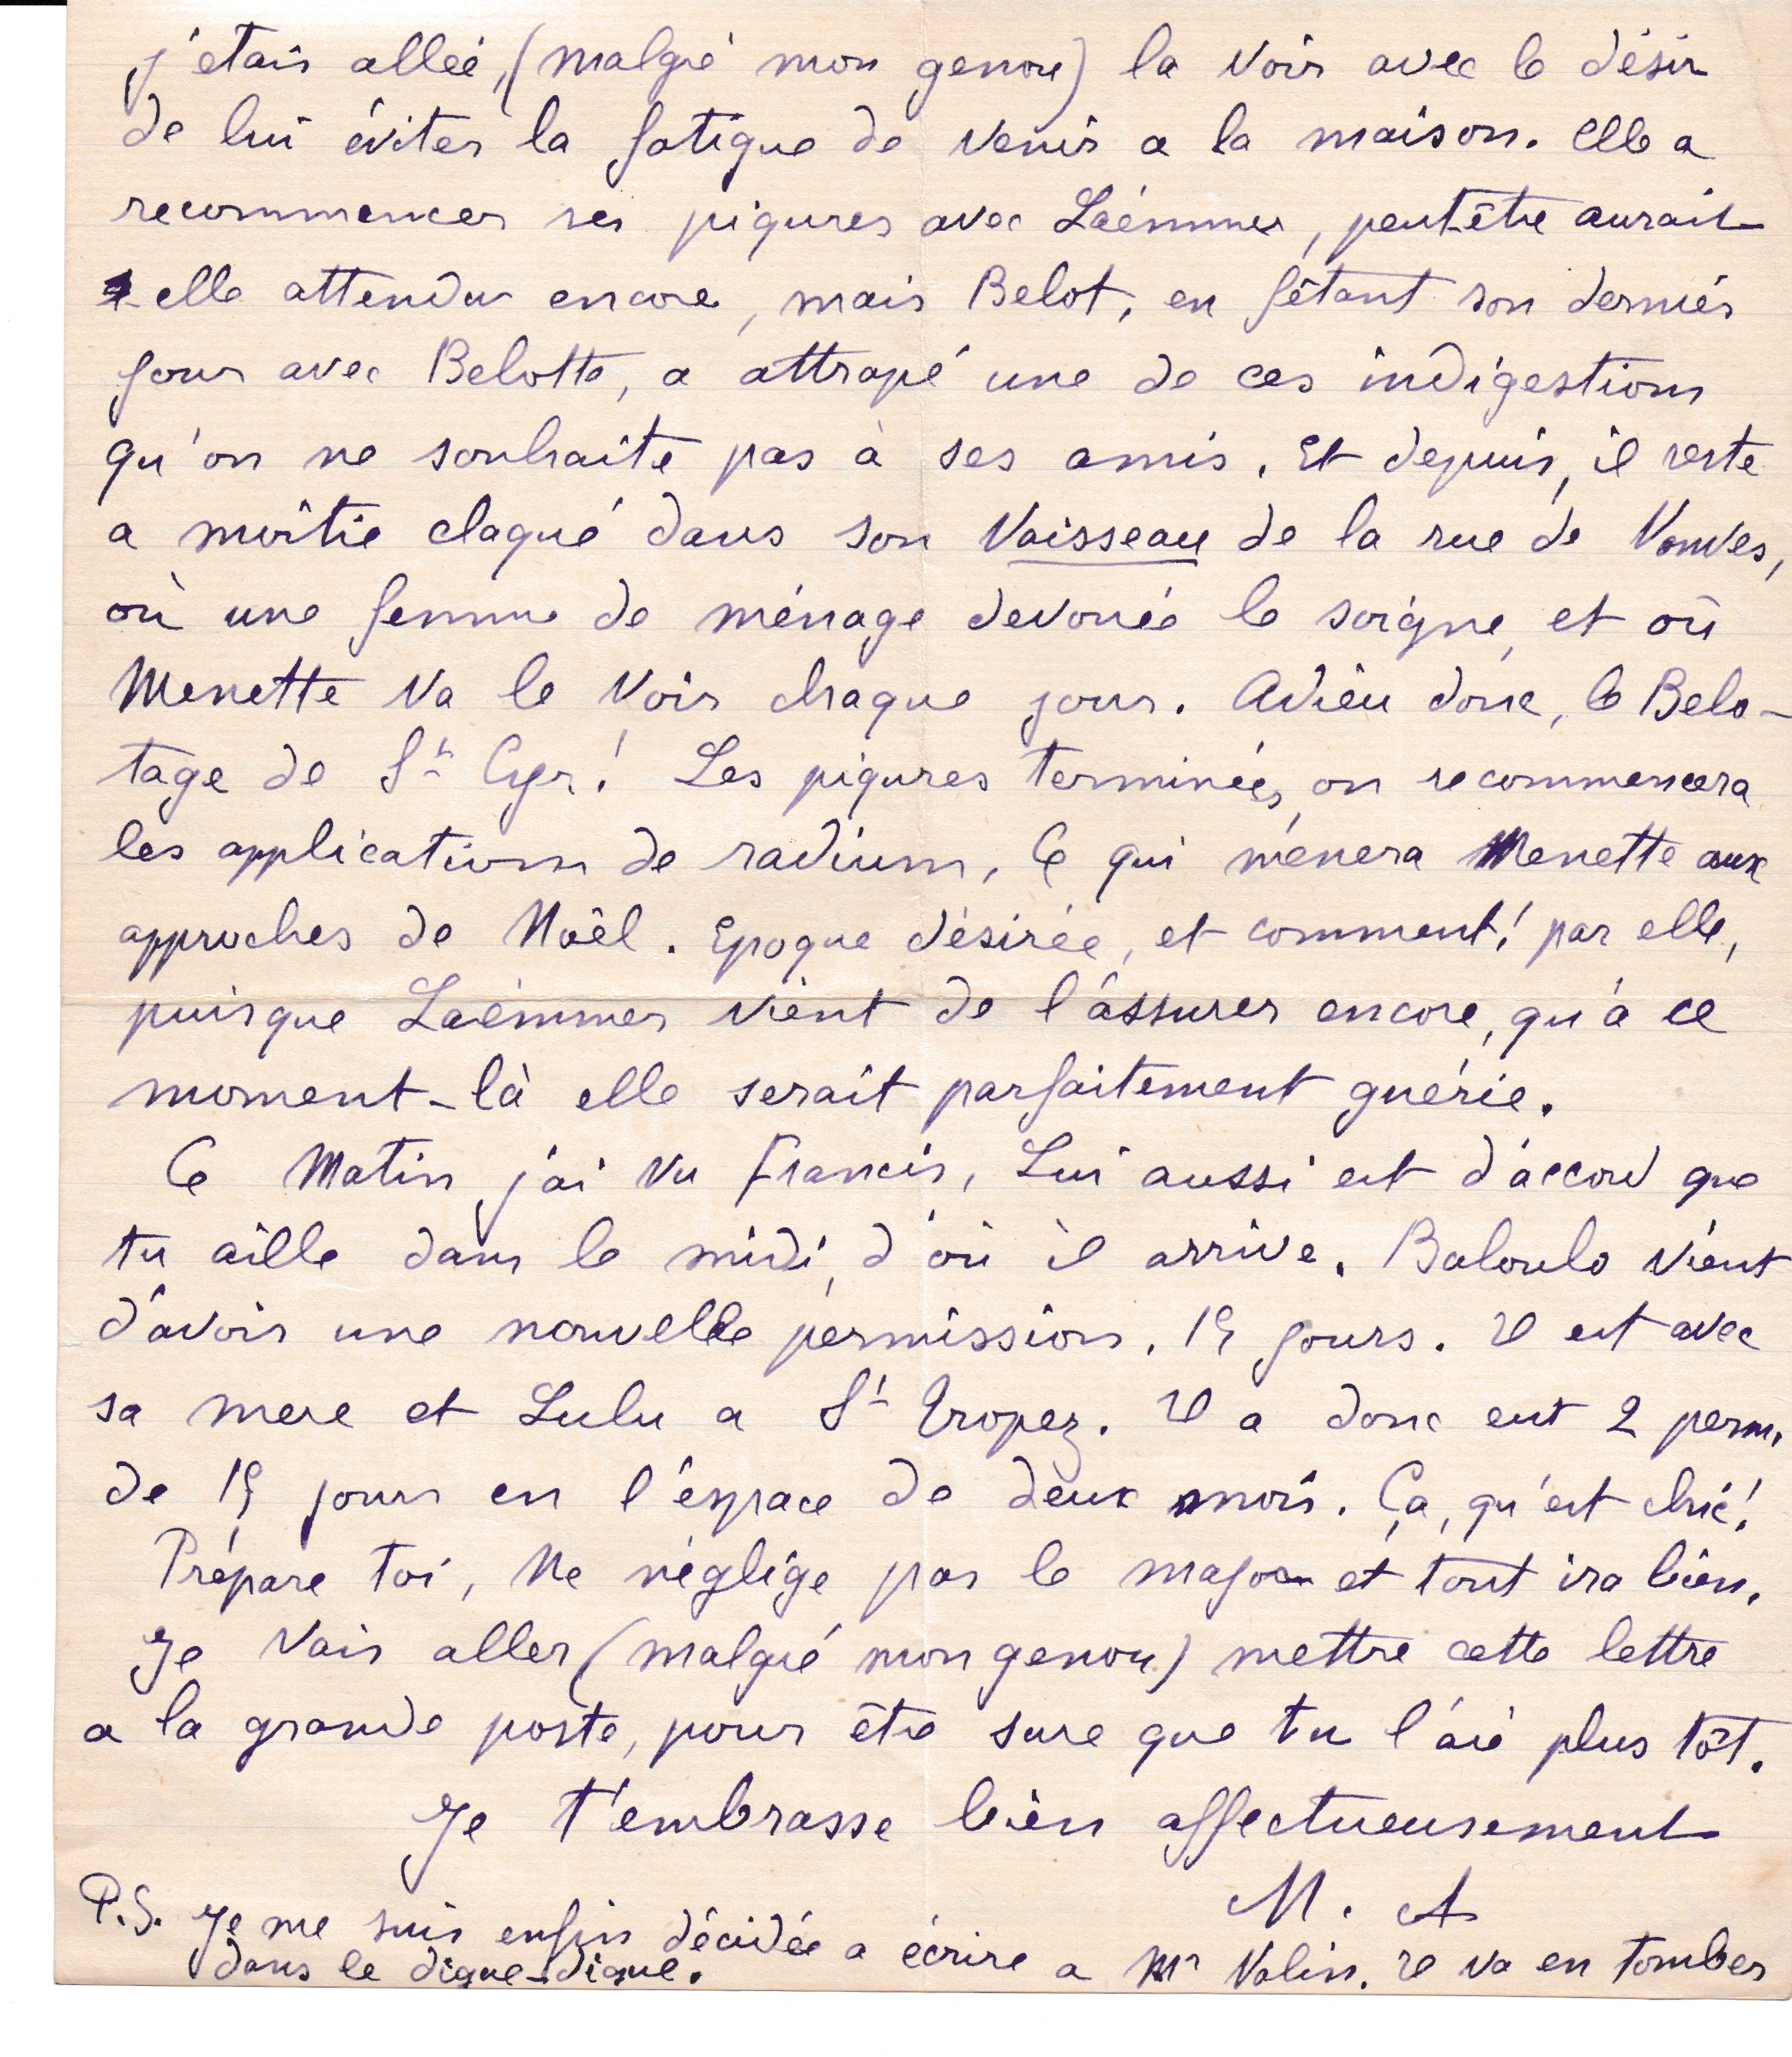 j'étais allée, (malgré mon genou) la voir avec le désir
de lui éviter la fatigue de venir a la maison. Elle a
recommencer ses piqures avec Laémmer, peut-être aurait
-elle attendu encore, mais Belot, en fêtant son dernier
jour avec Belotte, a attrapé une de ces indigestions
qu'on ne souhaite pas à ses amis. Et depuis, il reste
a moitié claqué dans son Vaisseau de la rue de Vanves,
où une femme de ménage devouée le soigne, et où
Menette va le voir chaque jour. Adieu donc, le Belo-
tage de St Cyr! Les piqures terminées, on recommencera
les applications de radium, Ce qui ménera Menette aux
approches de Noël. Epoque désirée, et comment! par elle,
puisque Laémmer vient de l'assurer encore, qu'à ce
moment-là elle serait parfaitement guérie.
Ce Matin j'ai vu Francis, Lui aussi est d'accord que
tu aille dans le midi, d'où il arrive. Baloulo vient
d'avoir une nouvelle permission. 15 jours. Il est avec
sa mere et Lulu a St Tropez. Il a donc eut 2 perm.
de 15 jours en l'espace de deux mois. Ça, qu'est chic!
Prépare toi, Ne néglige pas le major et tout ira bien.
Je vais aller (malgré mon genou) mettre cette lettre
a la grande poste, pour être sure que tu l'aie plus tôt.
Je t'embrasse bien affectueusement
M. A
P.S. Je me suis enfin décidée a écrire a Mr Valin. Il va en tomber
dans le digue-digue.